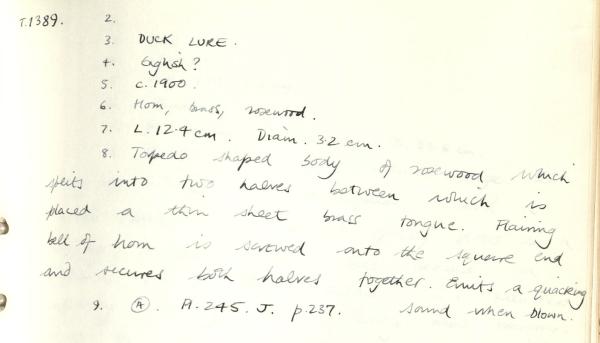 T.1389. 2.
3. DUCK LURE.
4. English?
5. c.1900.
6. Horn, brass, rosewood.
7. L. 12.4 cm. Diam. 3.2 cm.
8. Torpedo shaped body of rosewood which
splits into two halves between which is
placed a thin sheet brass tongue. Flairing
bell of horn is screwed onto the square end
and secures both halves together. Emits a quacking
sound when blown.
9. (A). A.245.J. p.237.